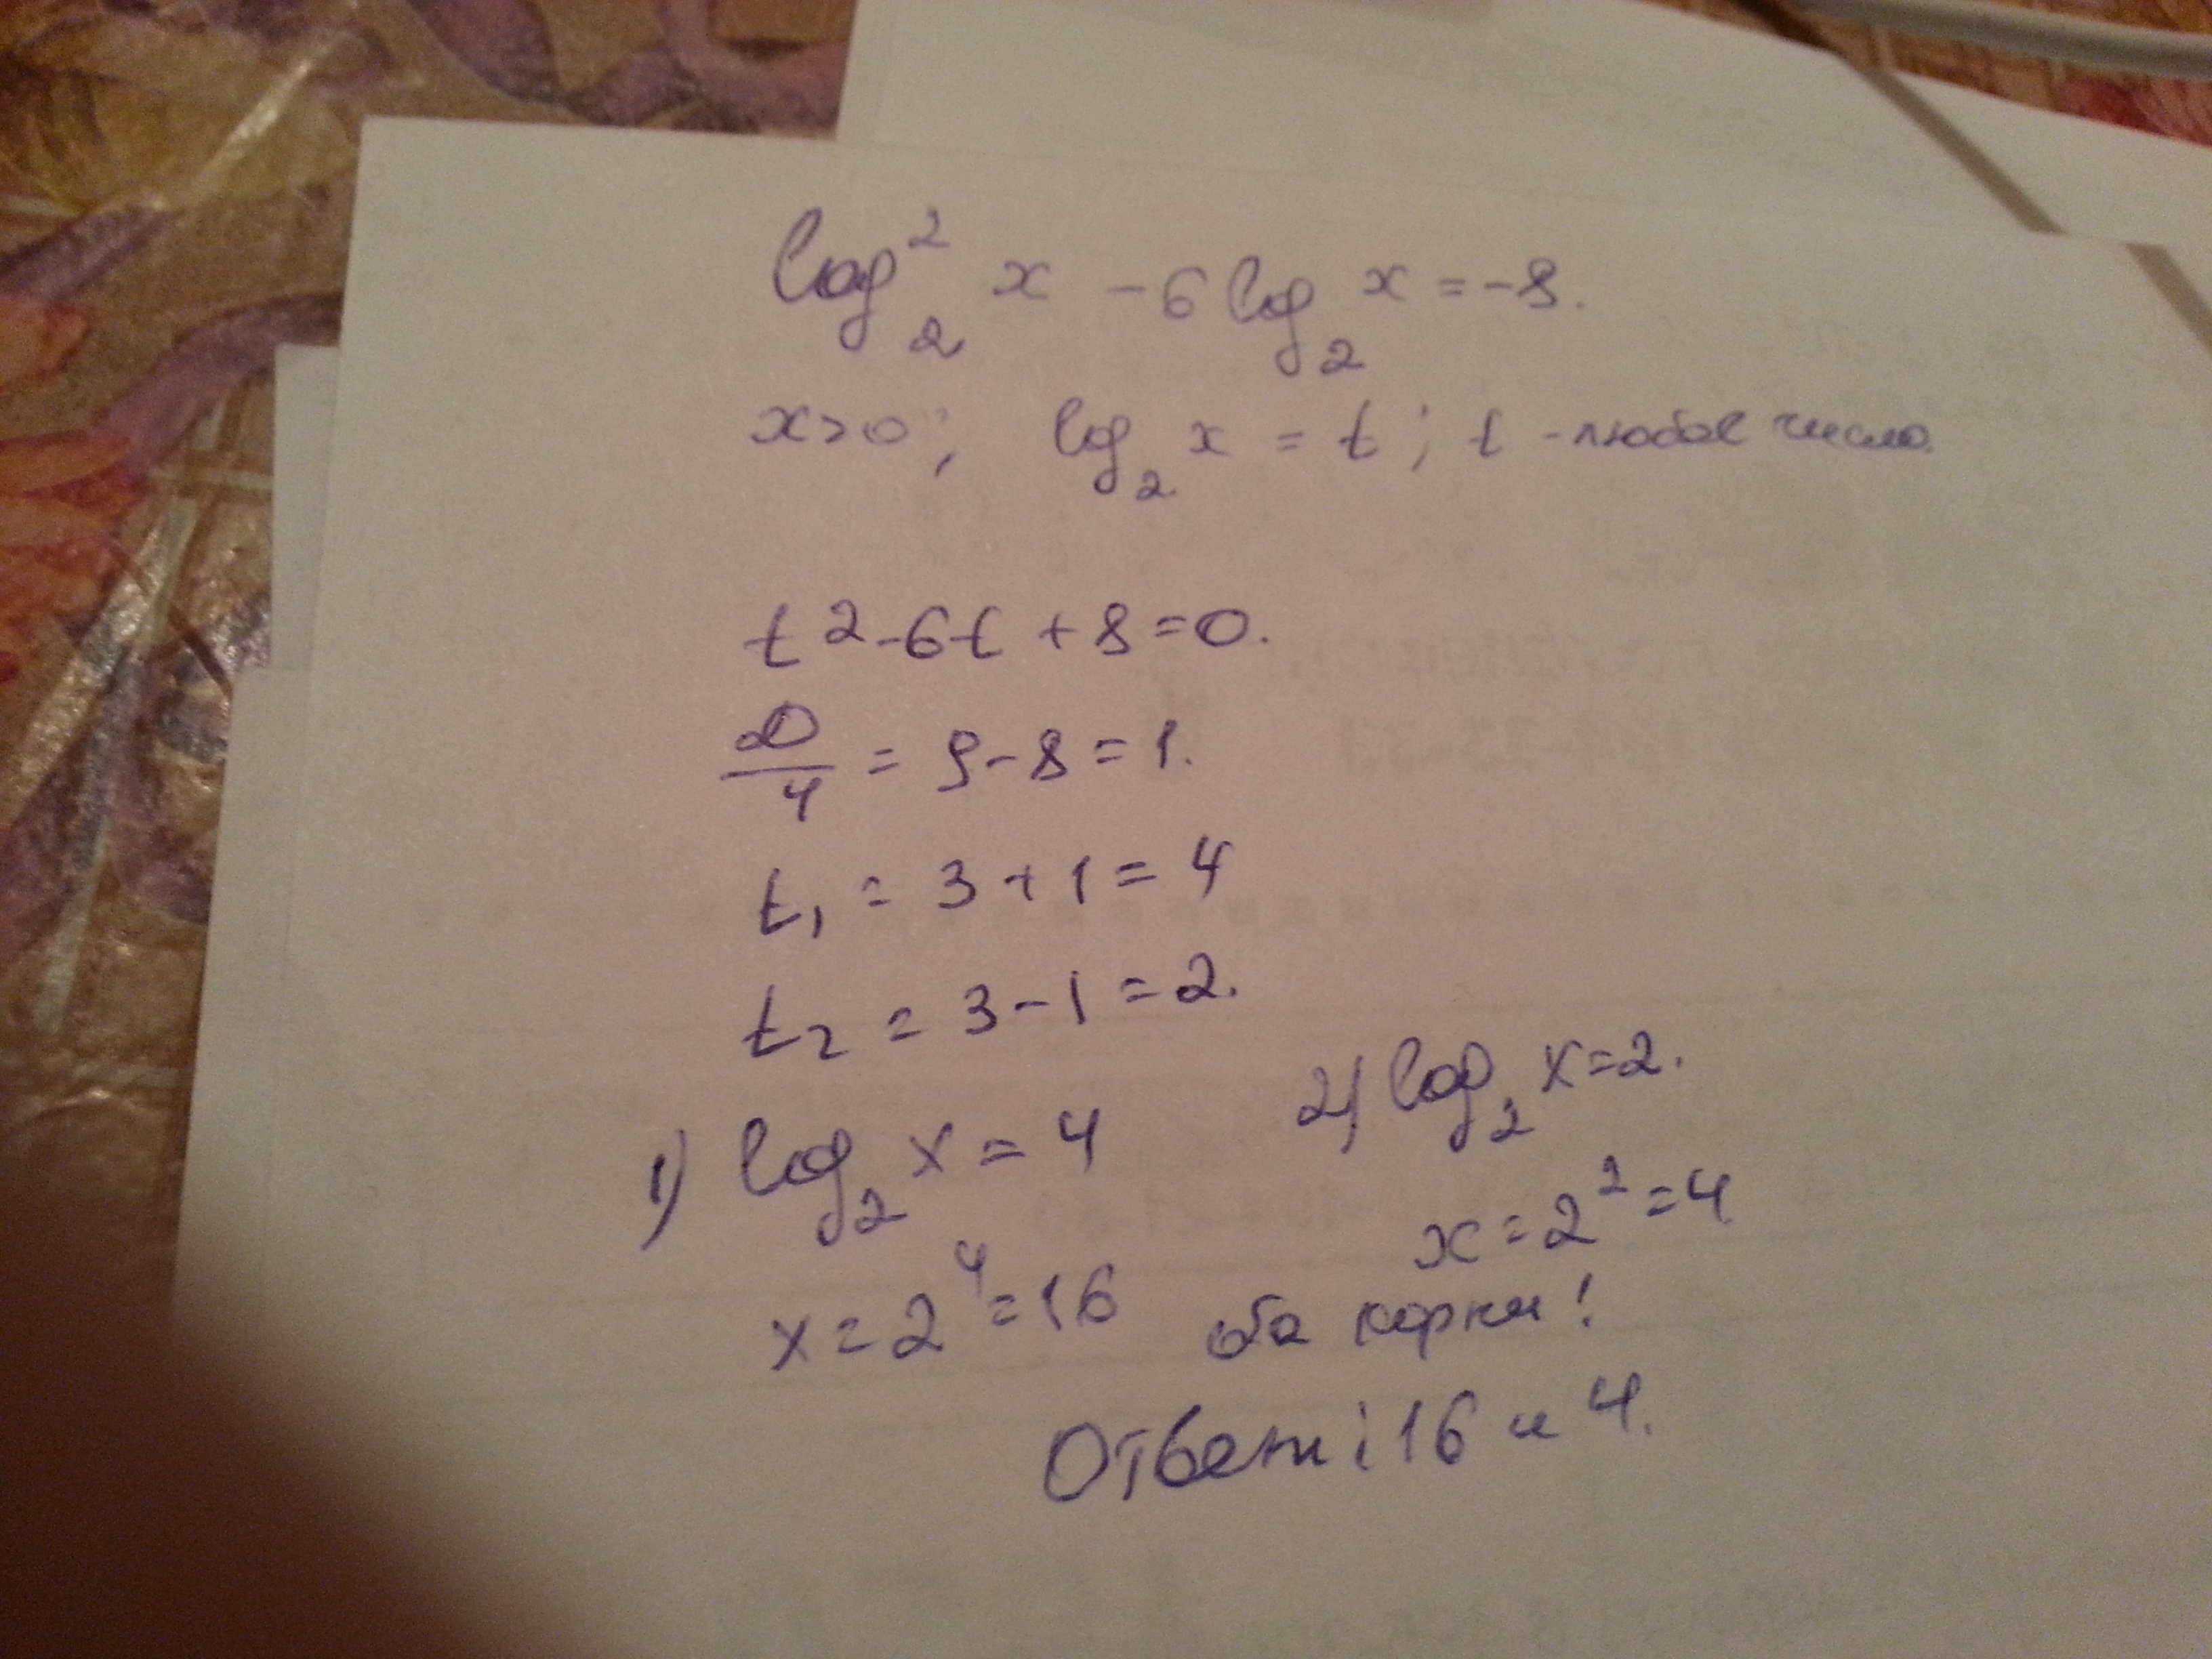 log₂² x - 6 log₂ x = -8.
x>0; log₂ x = t; t - любое число
t² - 6t + 8 = 0.
D/4 = 9 - 8 = 1.
t₁ = 3 + 1 = 4
t₂ = 3 - 1 = 2.
1) log₂ x = 4
x = 2⁴ = 16
2) log₂ x = 2.
x = 2² = 4
оба корни!
Ответ: 16 и 4.